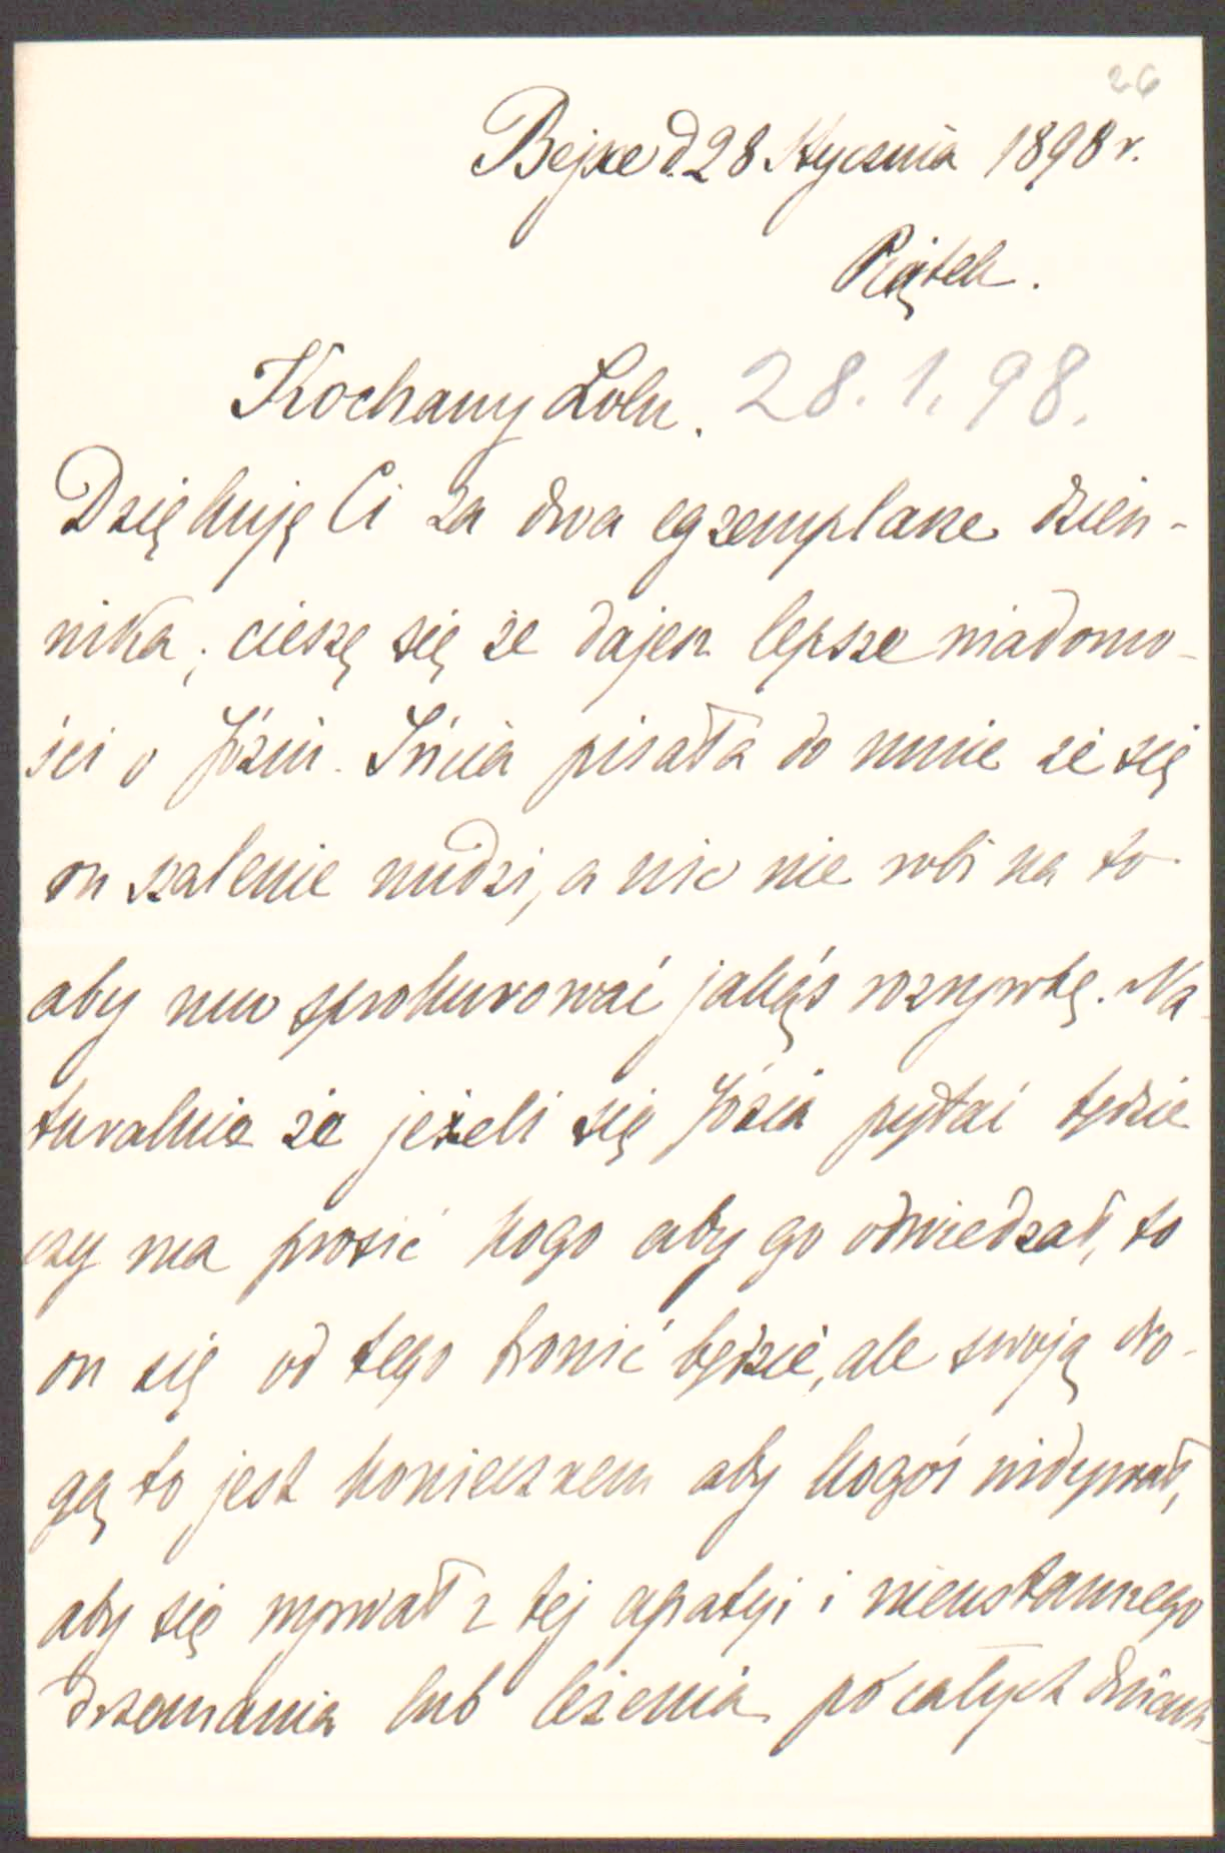 26
Bejsce d. 28 Stycznia 1898 r.
Piątek.
Kochany Lolu. 28.1.98.
Dziękuję Ci za dwa egzemplarze dzien-
nika; cieszę się że dajesz lepsze wiadomo-
ści o Józiu. Lucia pisała do mnie że się
on szalenie nudzi, a nic nie robi na to
aby mu sprokurować jakąś rozrywkę. Na-
turalnie że jeżeli się Józia pytać będzie
czy ma prosić kogo aby go odwiedzał, to
on się od tego bronić będzie, ale swoją dro-
gą to jest koniecznem aby kogoś widywał,
aby się wyrwał z tej apatyi i nieustannego
drzemania lub leżenia po całych dniach